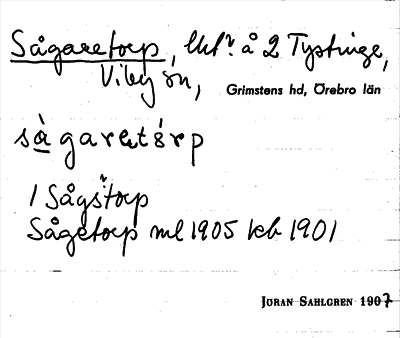 Sågaretorp, Uttr. å 2 Tystinge,
Viby sn,
Grimstens hd, Örebro län
sågaretårp
1 Sågstorp
Sågetorp ml 1905 kb 1901
JÖRAN SAHLGREN 1907